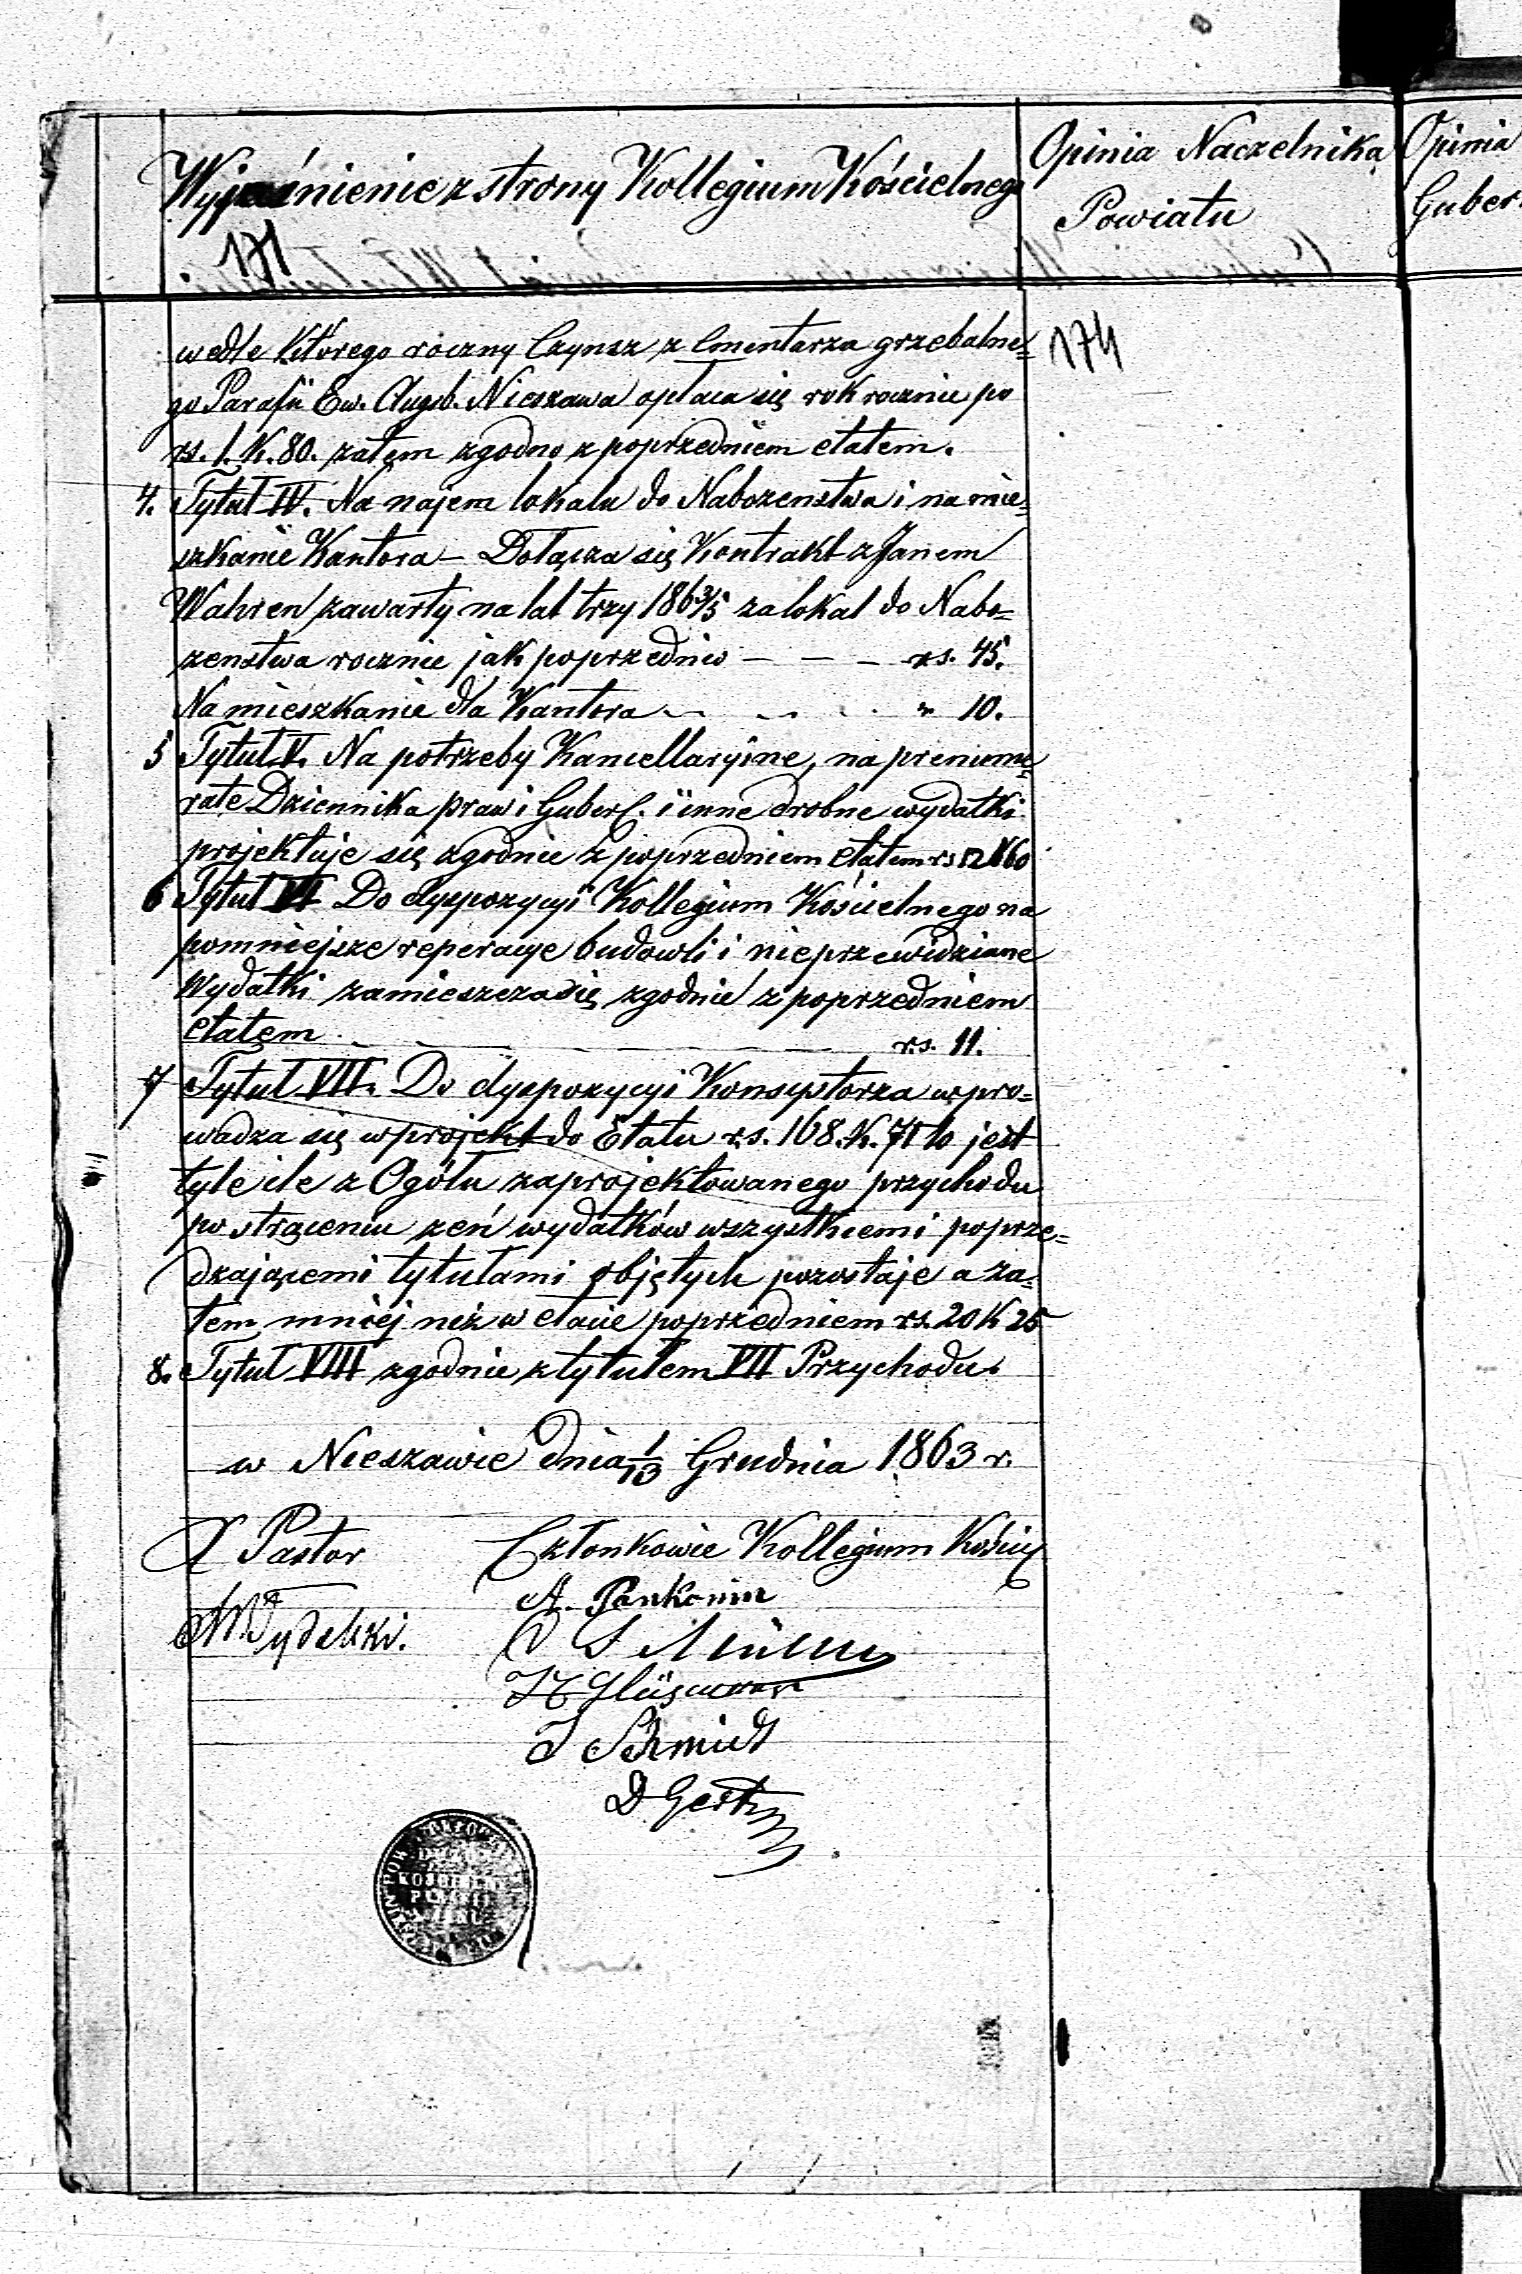 Wyjaśnienie z strony Kollegium Kościelnego
Opinia Naczelnika
Powiatu
Opinia
Guber
171
174
wedle którego roczny Czynsz z Cmentarza grzebalne=
go Parafii Ew. Augsb. Nieszawa opłaca się rok rocznie po
rs. 1. K. 80. zatem zgodno z poprzedniem etatem.
4. Tytuł IV. Na najem lokalu do Nabozenstwa i na mie=
szkanie Kantora – Dołącza się Kontrakt z Janem
Wahren zawarty na lat trzy 186 3/5 za lokal do Nabo=
zenstwa rocznie jak poprzednio – – – rs. 45.
Na mieszkanie dla Kantora – – . . " 10.
5 Tytuł V. Na potrzeby Kancellaryine, na prenume=
ratę Dziennika praw i Guber. i inne drobne wydatki
projektuje się zgodnie z poprzedniem etatem rs 12 K 60
6 Tytuł VI Do dyspozycyi Kollegium Kościelnego na
pomniejsze reperacye budowli i nieprzewidziane
Wydatki zamieszcza się zgodnie z poprzedniem
etatem – – – – – rs. 11.
7 Tytuł VII. Do dyspozycyi Konsystorza wpro=
wadza się w projekt do Etatu rs. 168. K. 71 to jest
tyle ile z Ogółu zaprojektowanego przychodu
po strąceniu zeń wydatków wszystkiemi poprze=
dzającemi tytułami objętych pozostaje a za=
tem mniej niż w etacie poprzedniem rs. 20 K 25
8. Tytuł VIII zgodnie z tytułem VII Przychodu.
w Nieszawie dnia 1/13 Grudnia 1863 r.
X Pastor
Członkowie Kollegium Kościel
A. Pankonin
J Schmidt
D Gertz
KOŚCIELNE
PARAFII